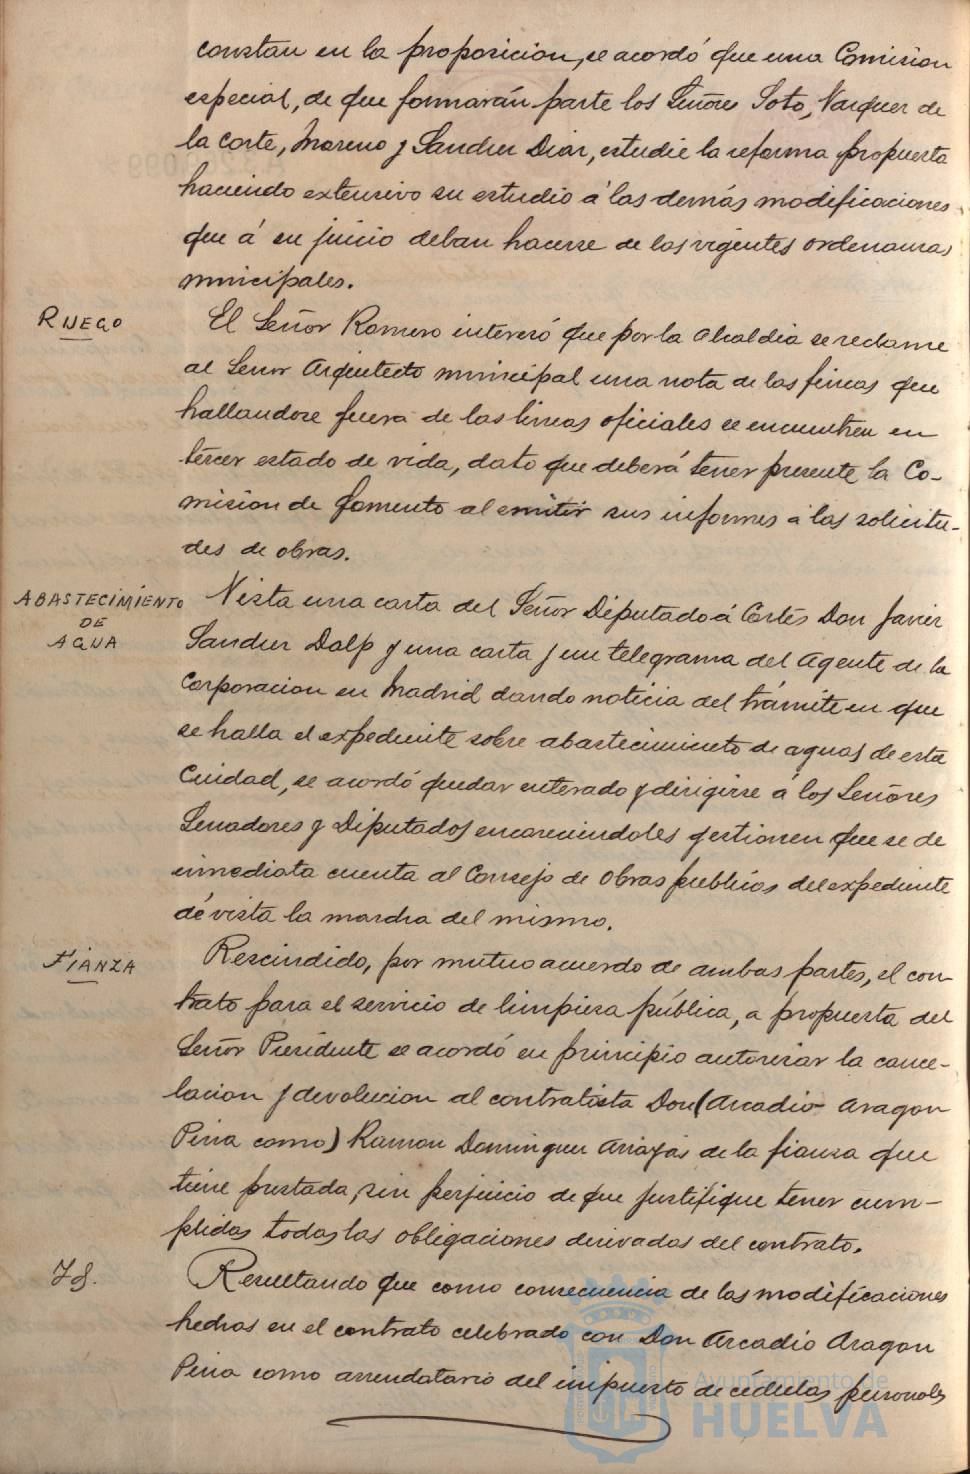 constan en la proposicion, se acordó que una Comision
especial, de que formarán parte los Señores Soto, Vazquez de
la Corte, Moreno y Sanchez Diaz, estudie la reforma propuesta
haciendo extensivo su estudio á las demás modificaciones
que á su juicio deban hacerse de las vigentes ordenanzas
municipales.
RUEGO
El Señor Romero interesó que por la Alcaldia se reclame
al Señor Arquitecto municipal una nota de las fincas que
hallandose fuera de las lineas oficiales se encuentren en
tercer estado de vida, dato que deberá tener presente la Co-
mision de fomento al emitir sus informes a las solicitu-
des de obras.
ABASTECIMIENTO
DE
AGUA
Vista una carta del Señor Diputado á Cortes Don Javier
Sanchez Dalp y una carta y un telegrama del Agente de la
Corporacion en Madrid dando noticia del trámite en que
se halla el expediente sobre abastecimiento de aguas de esta
Ciudad, se acordó quedar enterado y dirigirse á los Señores
Senadores y Diputados encareciendoles gestionen que se de
inmediata cuenta al Consejo de Obras publicas del expediente
de vista la marcha del mismo.
FIANZA
Rescindido, por mutuo acuerdo de ambas partes, el con-
trato para el servicio de limpieza pública, a propuesta del
Señor Presidente se acordó en principio autorizar la cance-
lacion y devolucion al contratista Don (Arcadio Aragon
Pina como) Ramon Dominguez Arrayás de la fianza que
tiene prestada, sin perjuicio de que justifique tener cum-
plidas todas las obligaciones derivadas del contrato.
Id.
Resultando que como consecuencia de las modificaciones
hechas en el contrato celebrado con Don Arcadio Aragon
Pina como arrendatario del impuesto de cédulas personales
Ayuntamiento de
HUELVA